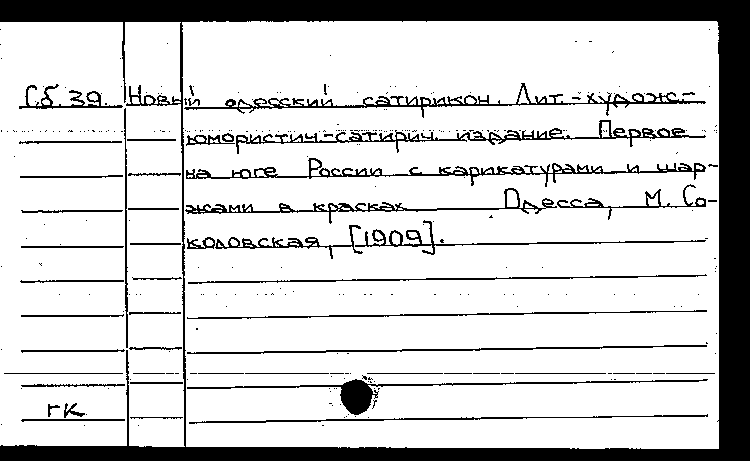 Сб. 39. Новый одесский сатирикон. Лит.-худож.-
юмористич.-сатирич. издание. Первое
на юге России с карикатурами и шар-
жами в красках Одесса, М. Со-
коловская, [1909].
гк